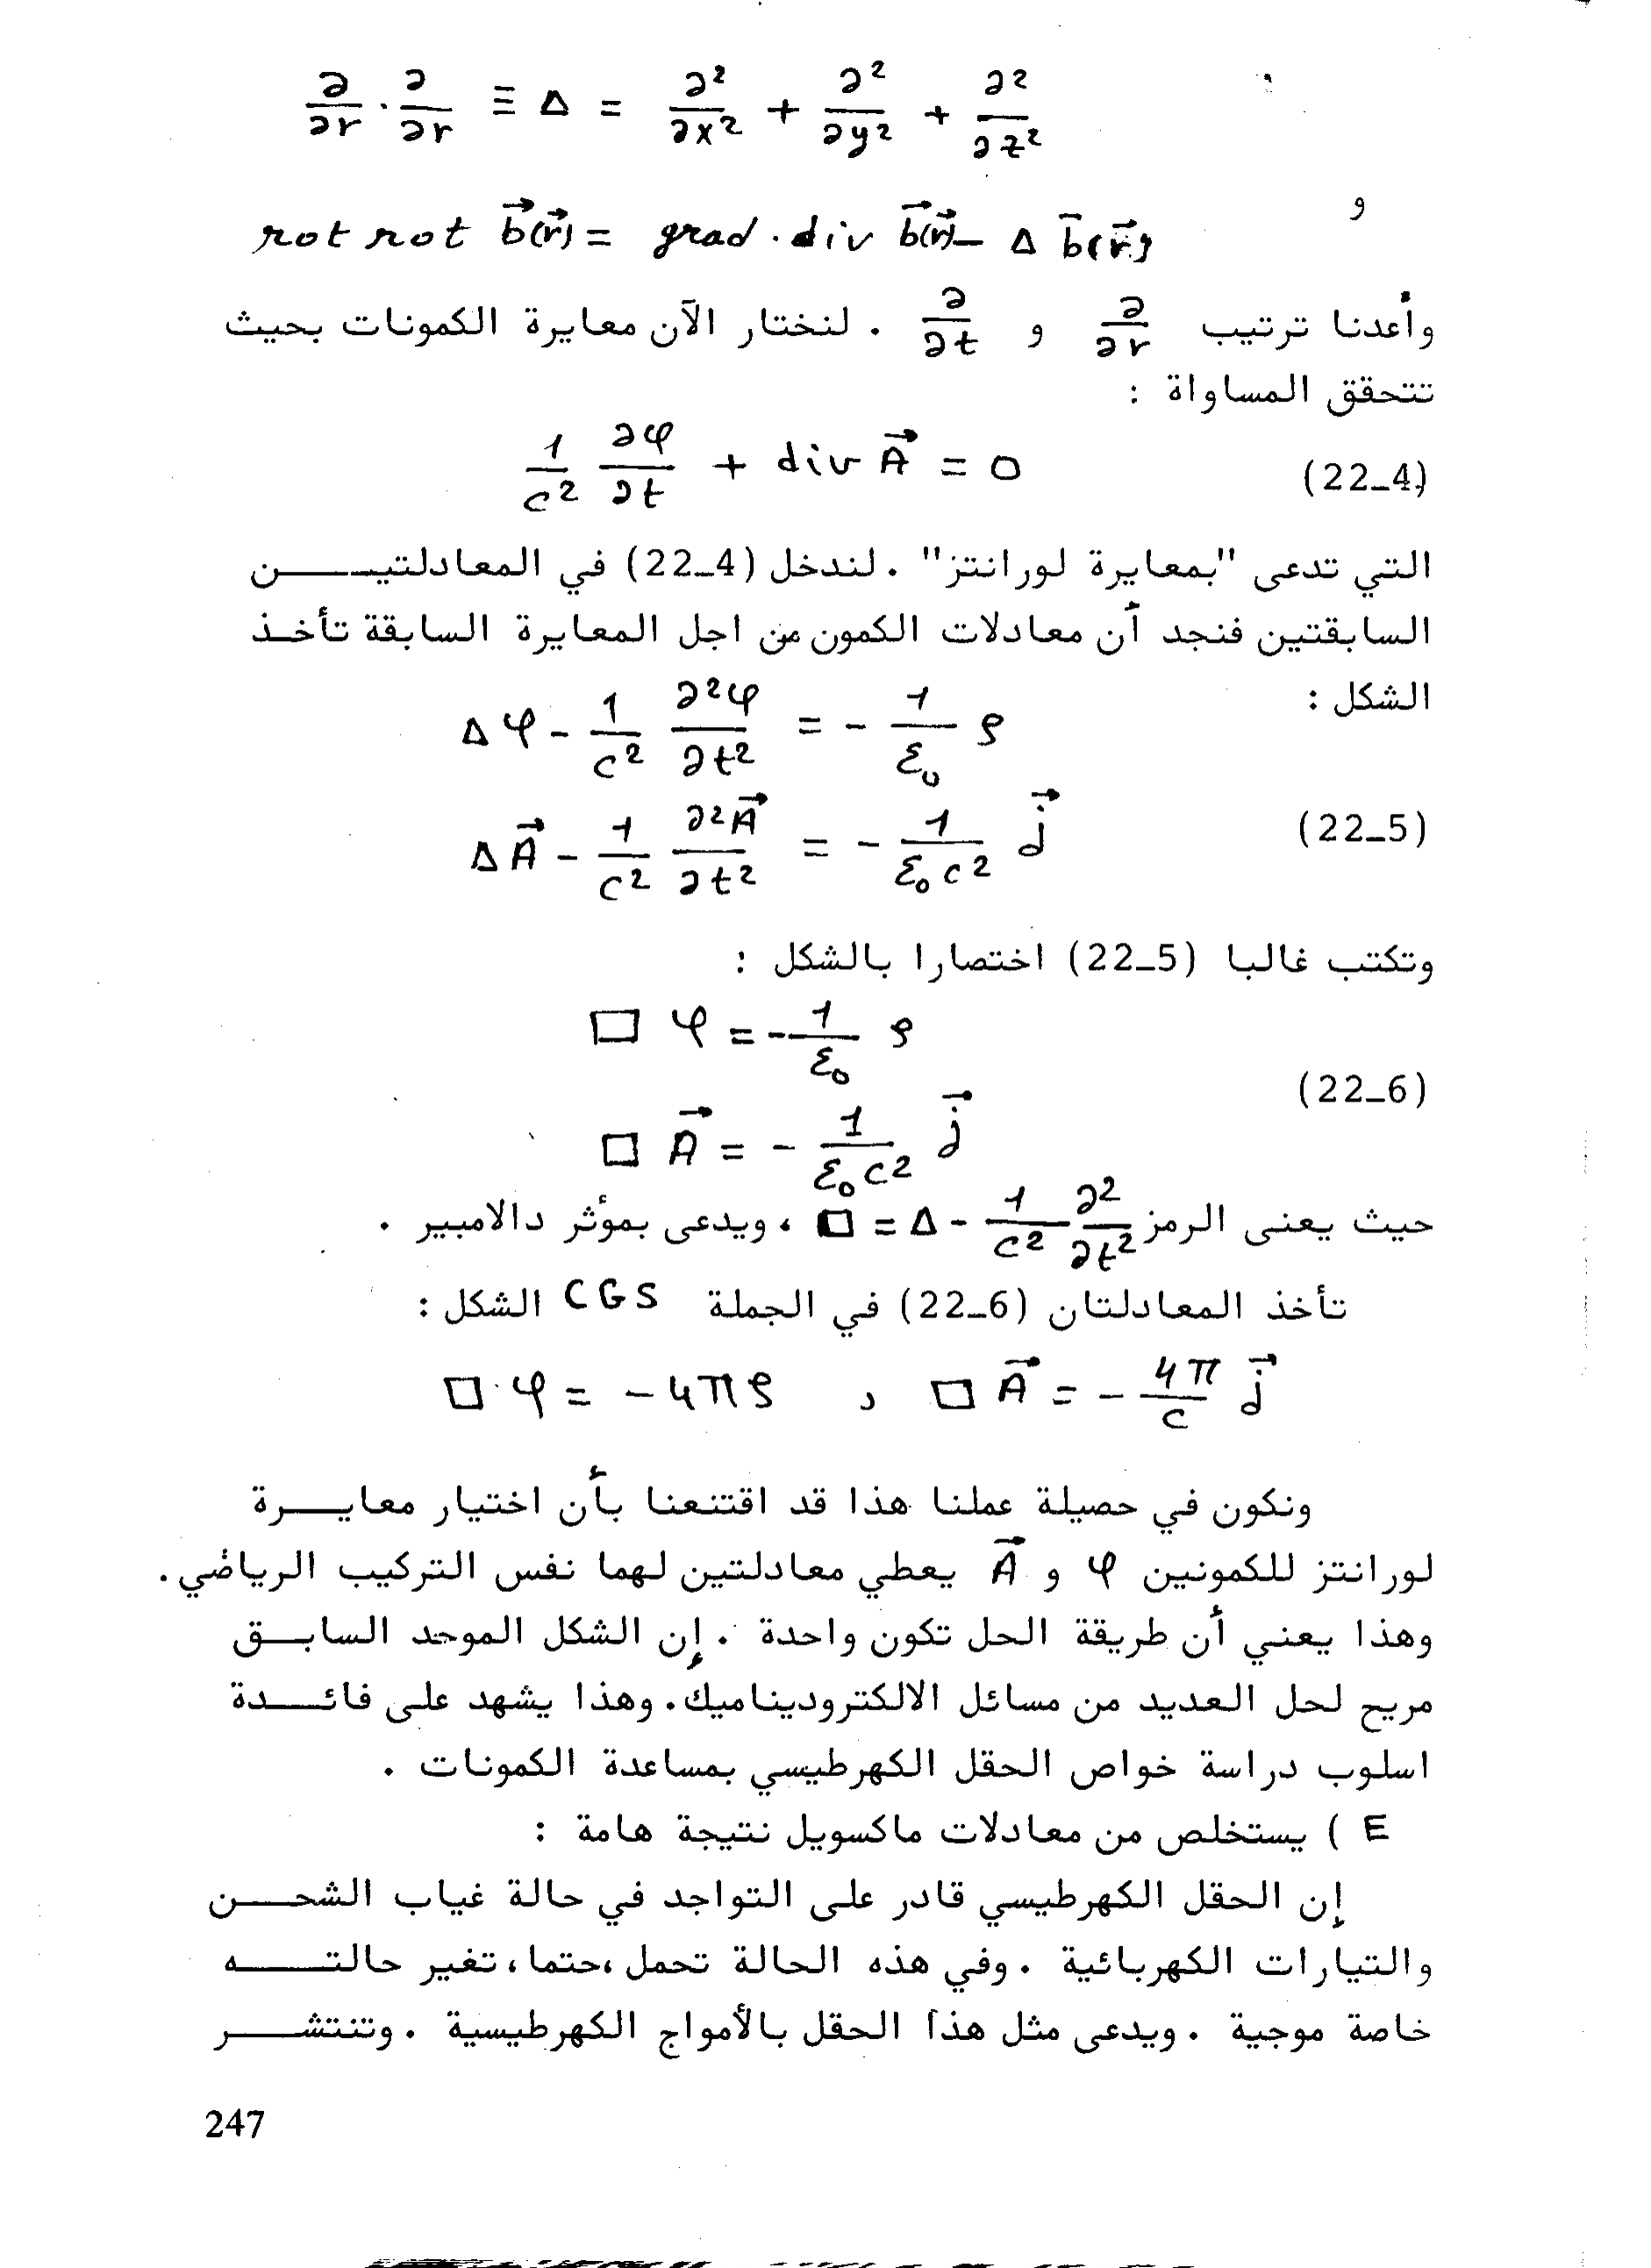 ∂/∂r · ∂/∂r ≡ Δ = ∂²/∂x² + ∂²/∂y² + ∂²/∂z²
و
rot rot b⃗(r⃗) = grad · div b⃗(r⃗) − Δ b⃗(r⃗)
وأعدنا ترتيب ∂/∂r و ∂/∂t . لنختار الآن معايرة الكمونات بحيث
تتحقق المساواة :
1/c² ∂φ/∂t + div A⃗ = 0 (22_4)
التي تدعى "بمعايرة لورانتز" . لندخل (22_4) في المعادلتيـــن
السابقتين فنجد أن معادلات الكمون من اجل المعايرة السابقة تأخـذ
الشكل :
Δφ − 1/c² ∂²φ/∂t² = − 1/ε₀ ρ
ΔA⃗ − 1/c² ∂²A⃗/∂t² = − 1/ε₀c² j⃗ (22_5)
وتكتب غالبا (22_5) اختصارا بالشكل :
□ φ = − 1/ε₀ ρ
(22_6)
□ A⃗ = − 1/ε₀c² j⃗
حيث يعنى الرمز □ = Δ − 1/c² ∂²/∂t² ، ويدعى بمؤثر دالامبير .
تأخذ المعادلتان (22_6) في الجملة CGS الشكل :
□ φ = −4πρ , □ A⃗ = − 4π/c j⃗
ونكون في حصيلة عملنا هذا قد اقتنعنا بأن اختيار معايـــرة
لورانتز للكمونين φ و A⃗ يعطي معادلتين لهما نفس التركيب الرياضي .
وهذا يعني أن طريقة الحل تكون واحدة . إن الشكل الموحد السابــق
مريح لحل العديد من مسائل الالكتروديناميك . وهذا يشهد على فائـــدة
اسلوب دراسة خواص الحقل الكهرطيسي بمساعدة الكمونات .
E ) يستخلص من معادلات ماكسويل نتيجة هامة :
إن الحقل الكهرطيسي قادر على التواجد في حالة غياب الشحـــن
والتيارات الكهربائية . وفي هذه الحالة تحمل ،حتما ، تغير حالتـــه
خاصة موجية . ويدعى مثل هذا الحقل بالأمواج الكهرطيسية . وتنتشـــر
247